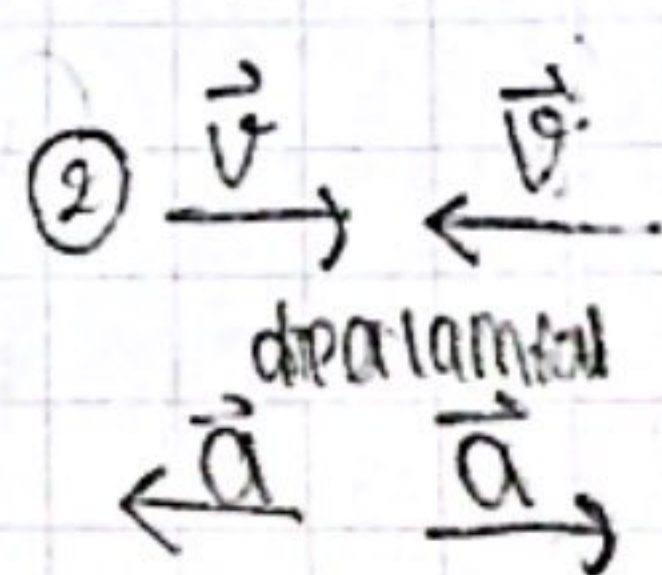 ② v⃗ v⃗
diperlambat
a⃗ a⃗